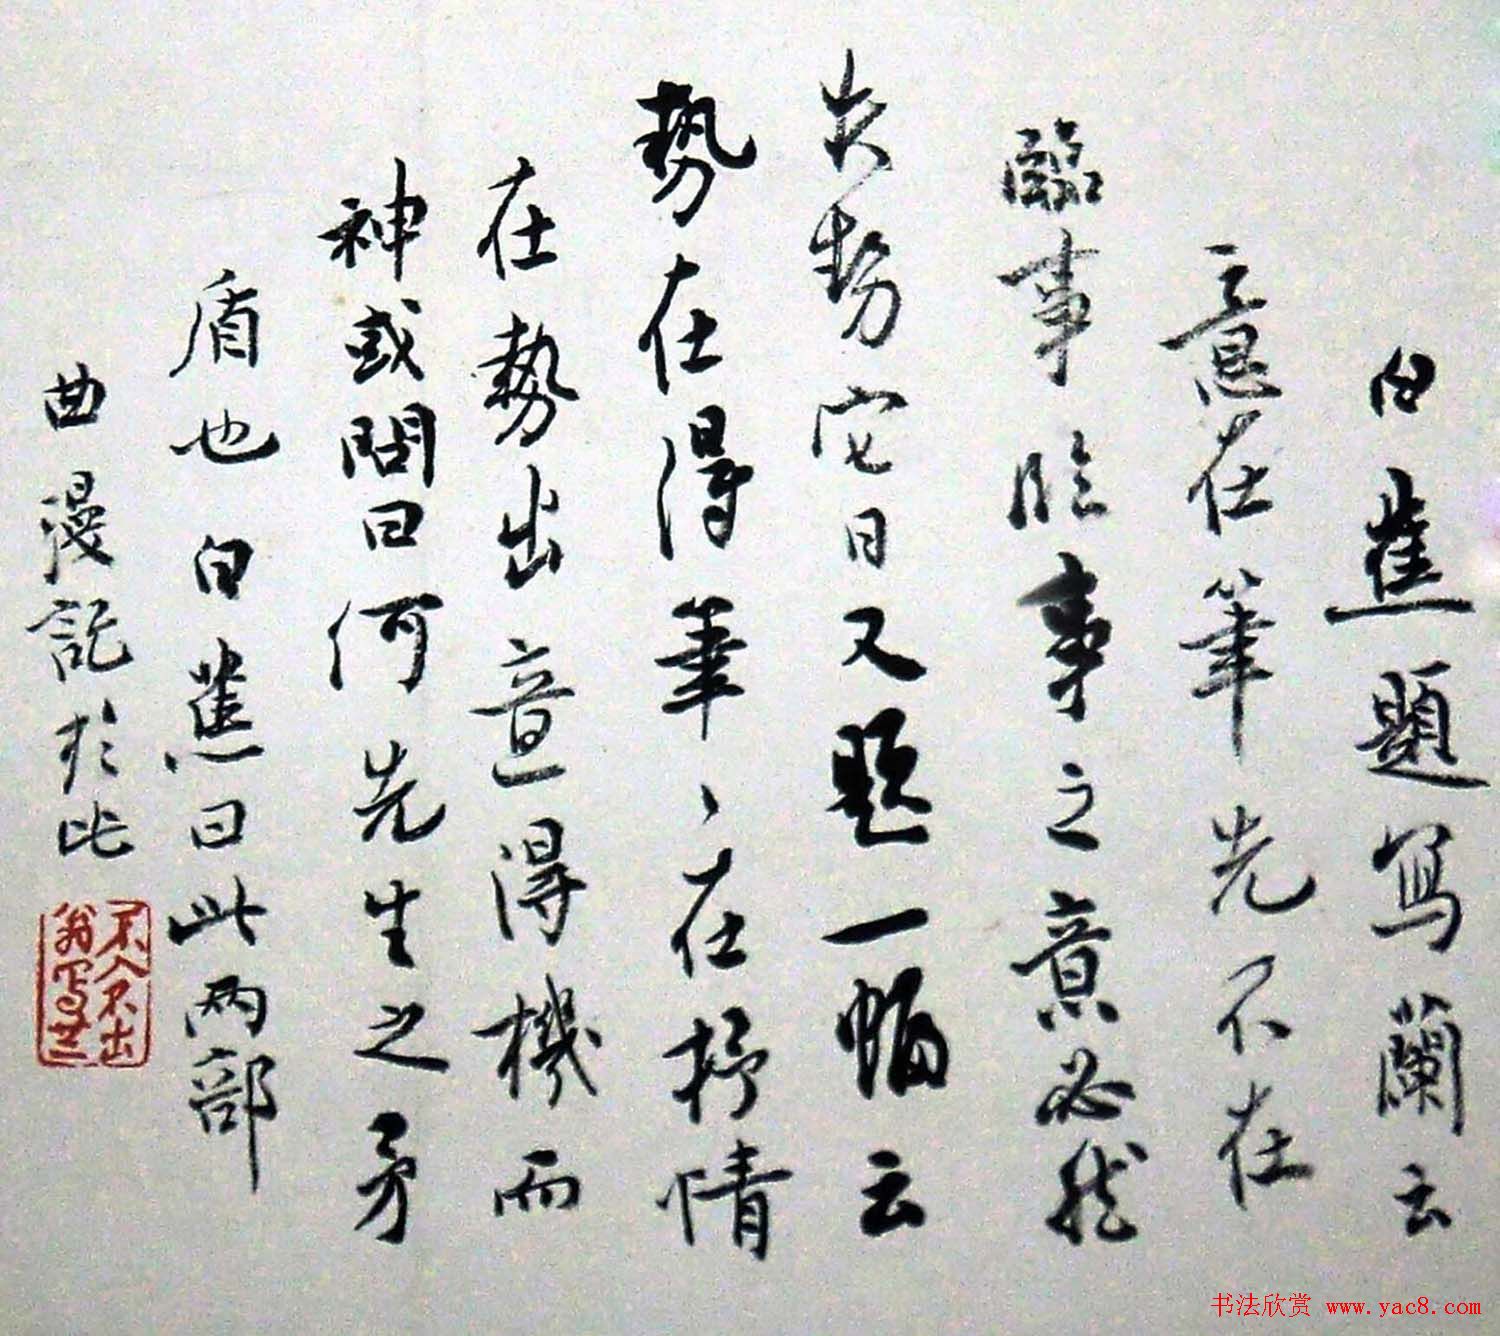 白蕉題寫蘭云
意在筆先不在
臨事臨事之意必然
失勢它日又题一幅云
勢在得筆、在抒情
在勢出意得機而
神或問曰何先生之矛
盾也白蕉曰此兩部
曲漫記於此
不入不出
翁写兰
书法欣赏 www.yac8.com